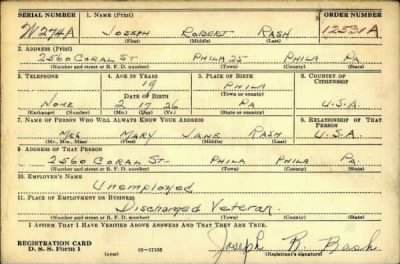 SERIAL NUMBER 1. NAME (Print) ORDER NUMBER
W274A JOSEPH ROBERT RASH 12531A
(First) (Middle) (Last)
2. ADDRESS (Print)
2560 CORAL ST PHILA 25 PHILA PA
(Number and street or R. F. D. number) (Town) (County) (State)
3. TELEPHONE 4. AGE IN YEARS 5. PLACE OF BIRTH 6. COUNTRY OF CITIZENSHIP
19 PHILA
DATE OF BIRTH (Town or county)
NONE 2 17 26 PA U.S.A.
(Exchange) (Number) (Mo.) (Day) (Yr.) (State or country)
7. NAME OF PERSON WHO WILL ALWAYS KNOW YOUR ADDRESS 8. RELATIONSHIP OF THAT PERSON
MRS MARY JANE RASH U.S.A.
(Mr., Mrs., Miss) (First) (Middle) (Last)
9. ADDRESS OF THAT PERSON
2560 CORAL ST- PHILA PHILA Pa
(Number and street or R. F. D. number) (Town) (County) (State)
10. EMPLOYER'S NAME
Unemployed
11. PLACE OF EMPLOYMENT OR BUSINESS
Discharged Veteran
(Number and street or R. F. D. number) (Town) (County) (State)
I AFFIRM THAT I HAVE VERIFIED ABOVE ANSWERS AND THAT THEY ARE TRUE.
REGISTRATION CARD
D. S. S. Form 1 Joseph R. Rash
(Registrant's signature)